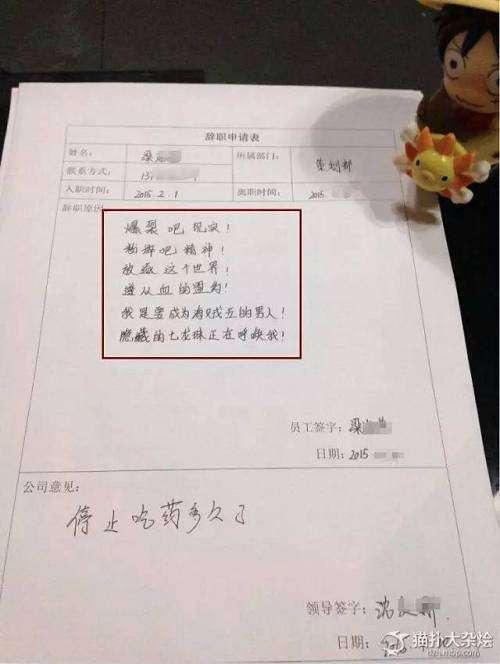 辞职申请表
姓名: 梁 所属部门: 策划部
联系方式: 13
入职时间: 2015.2.1 离职时间: 2015
辞职原因
爆裂吧现实!
粉碎吧精神!
放逐这个世界!
遵从血的盟约!
我是要成为海贼王的男人!
隐藏的七龙珠正在呼唤我!
员工签字: 梁
日期: 2015
公司意见:
停止吃药多久了
领导签字:
日期:
猫扑大杂烩
dzh.mop.com